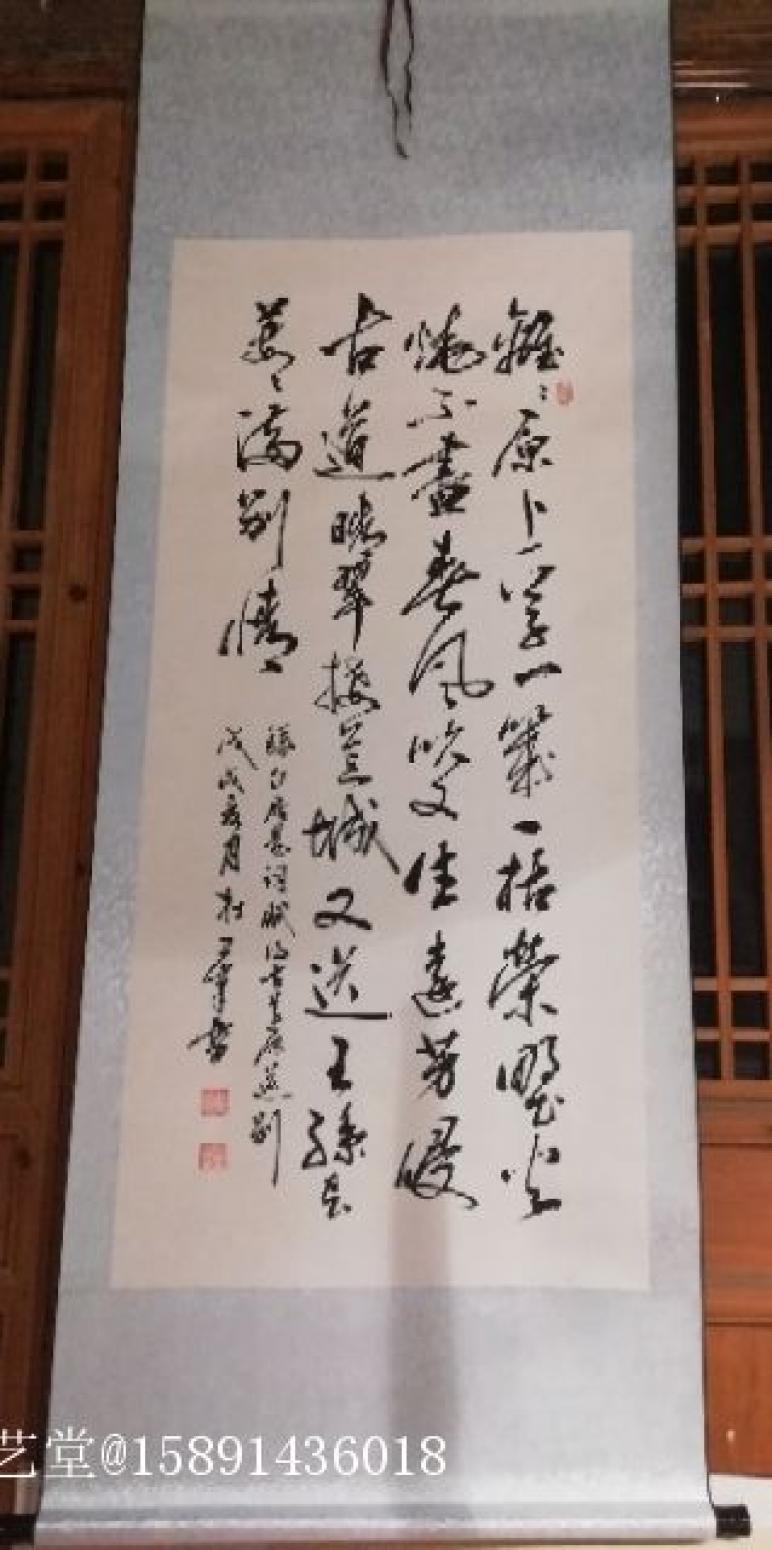 離々原上草一歲一枯榮野火
燒不盡春風吹又生遠芳侵
古道晴翠接荒城又送王孫去
萋々滿別情
録白居易詞賦得古草原送別
戊戌月杜書
艺堂@15891436018